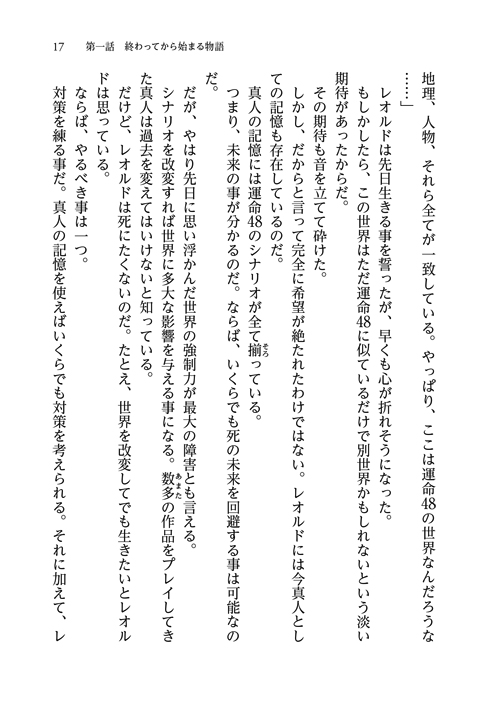 17　第一話　終わってから始まる物語
地理、人物、それら全てが一致している。やっぱり、ここは運命48の世界なんだろうな
……」
　レオルドは先日生きる事を誓ったが、早くも心が折れそうになった。
　もしかしたら、この世界はただ運命48に似ているだけで別世界かもしれないという淡い
期待があったからだ。
　その期待も音を立てて砕けた。
　しかし、だからと言って完全に希望が絶たれたわけではない。レオルドには今真人とし
ての記憶も存在しているのだ。
　真人の記憶には運命48のシナリオが全て揃そろっている。
　つまり、未来の事が分かるのだ。ならば、いくらでも死の未来を回避する事は可能なの
だ。
　だが、やはり先日に思い浮かんだ世界の強制力が最大の障害とも言える。
　シナリオを改変すれば世界に多大な影響を与える事になる。数多あまたの作品をプレイしてき
た真人は過去を変えてはいけないと知っている。
　だけど、レオルドは死にたくないのだ。たとえ、世界を改変してでも生きたいとレオル
ドは思っている。
　ならば、やるべき事は一つ。
　対策を練る事だ。真人の記憶を使えばいくらでも対策を考えられる。それに加えて、レ